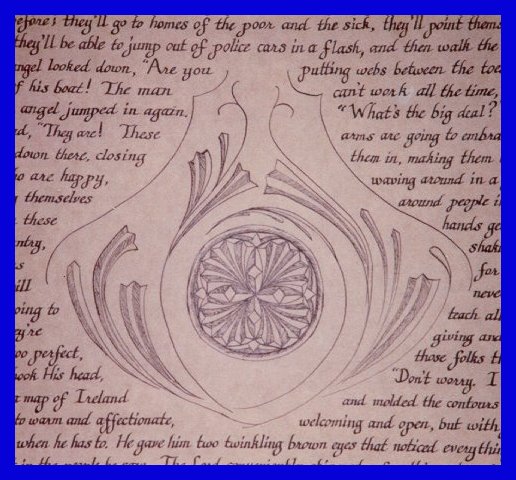 efore; they'll go to homes of the poor and the sick, they'll point thems
they'll be able to jump out of police cars in a flash, and then walk the
ngel looked down, "Are you putting webs between the toe
f his boat! The man can't work all the time,
angel jumped in again. "What's the big deal?
d, "They are! These arms are going to embra
down there, closing them in, making them
o are happy, waving around in a
themselves around people i
these hands ge
ntry, shak
s for
ill neve
oing to teach all
y're giving and
oo perfect, those folks th
ook His head, "Don't worry. I
a map of Ireland and molded the contours
to warm and affectionate, welcoming and open, but with
when he has to. He gave him two twinkling brown eyes that noticed everythin
in the people he saw. The Lord